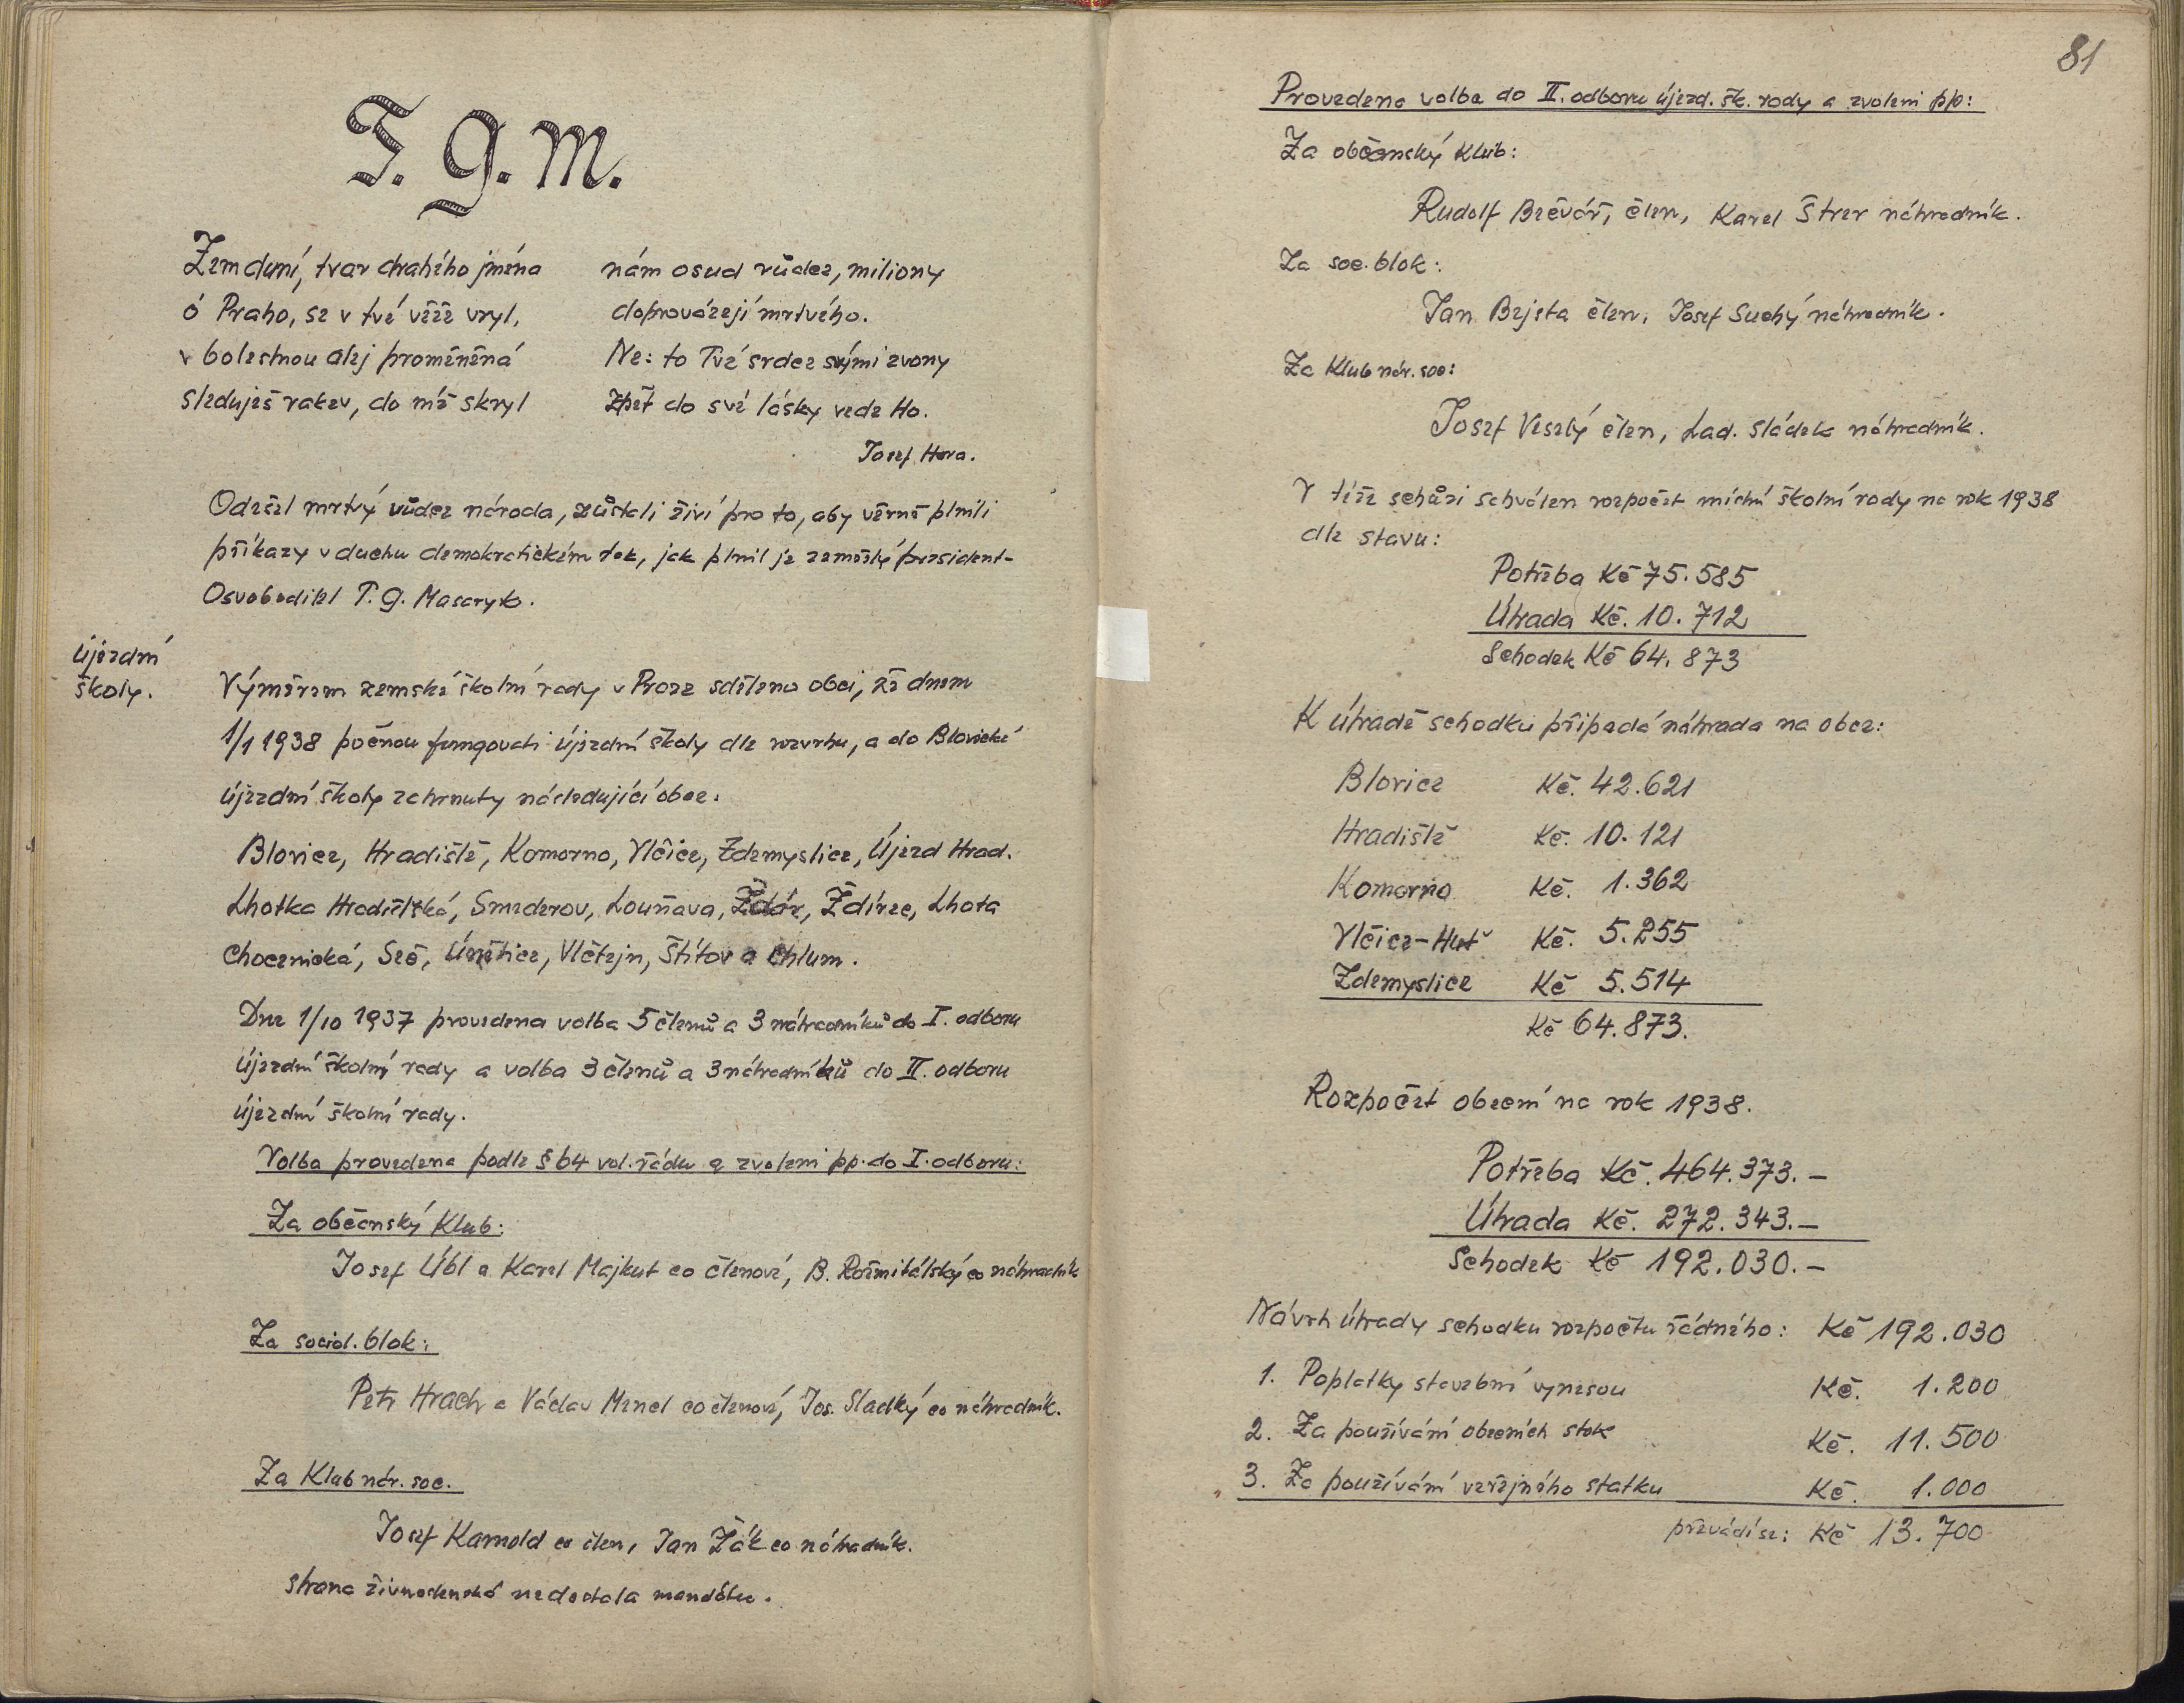 T. G. M.
Zem duní, tvar drahého jména
ó Praho, se v tvé věže vryl,
v bolestnou alej proměněná
sleduješ rakev, do níž skryl
nám osud vůdce, miliony
doprovázejí mrtvého.
Ne: to Tvé srdce svými zvony
zpět do své lásky vede Ho.
Josef Hora.
Odešel mrtvý vůdce národa, zůstali živí pro to, aby věrně plnili
příkazy v duchu demokratickém tak, jak plnil je zemřelý president-
Osvoboditel T. G. Masaryk.
Újezdní
školy.
Výměrem zemské školní rady v Praze sděleno obci, že dnem
1/1 1938 počnou fungovati újezdní školy dle rozvrhu, a do Blovické
újezdní školy zahrnuty následující obce:
Blovice, Hradiště, Komorno, Vlčice, Zdemyslice, Újezd Hrad.
Lhotka Hradišťská, Smederov, Louňava, Žďár, Ždírec, Lhota
Chocenická, Seč, Únětice, Vlčtejn, Štítov a Chlum.
Dne 1/10 1937 provedena volba 5 členů a 3 náhradníků do I. odboru
újezdní školní rady a volba 3 členů a 3 náhradníků do II. odboru
újezdní školní rady.
Volba provedena podle § 64 vol. řádu a zvoleni pp. do I. odboru:
Za občanský Klub:
Josef Úbl a Karel Majkut co členové, B. Rožmitálský co náhradník
Za social. blok:
Petr Hrach a Václav Mencl co členové, Jos. Sladký co náhradník.
Za Klub nár. soc.
Josef Karnold co člen, Jan Žák co náhradník.
Strana živnostenská nedostala mandátu.
81
Provedena volba do II. odboru újezd. šk. rady a zvoleni pp:
Za občanský Klub:
Rudolf Bečvář, člen, Karel Štrer náhradník.
Za soc. blok:
Jan Bejsta člen, Josef Suchý náhradník.
Za Klub nár. soc:
Josef Veselý člen, Lad. Sládek náhradník.
V téže schůzi schválen rozpočet místní školní rady na rok 1938
dle stavu:
Potřeba Kč 75.585
Úhrada Kč. 10.712
Schodek Kč 64.873
K úhradě schodku připadá náhrada na obce:
Blovice Kč. 42.621
Hradiště Kč. 10.121
Komorno Kč. 1.362
Vlčice-Huť Kč. 5.255
Zdemyslice Kč 5.514
Kč 64.873.
Rozpočet obecní na rok 1938.
Potřeba Kč. 464.373.-
Úhrada Kč. 272.343.-
Schodek Kč 192.030.-
Návrh úhrady schodku rozpočtu řádného: Kč 192.030
1. Poplatky stavební vynesou Kč. 1.200
2. Za používání obecních stok Kč. 11.500
3. Za používání veřejného statku Kč. 1.000
převádí se: Kč 13.700